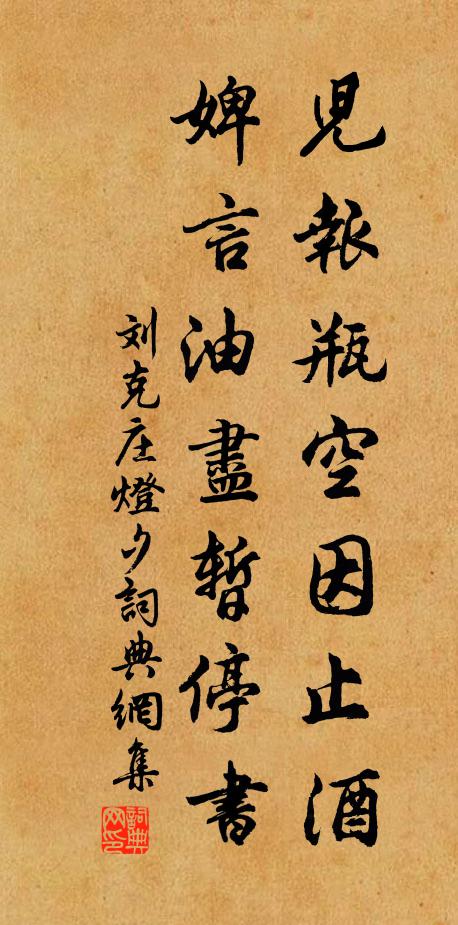 児報瓶空因止酒
婢言油盡暫停書
刘克庄燈夕詞典網集
詞典网印